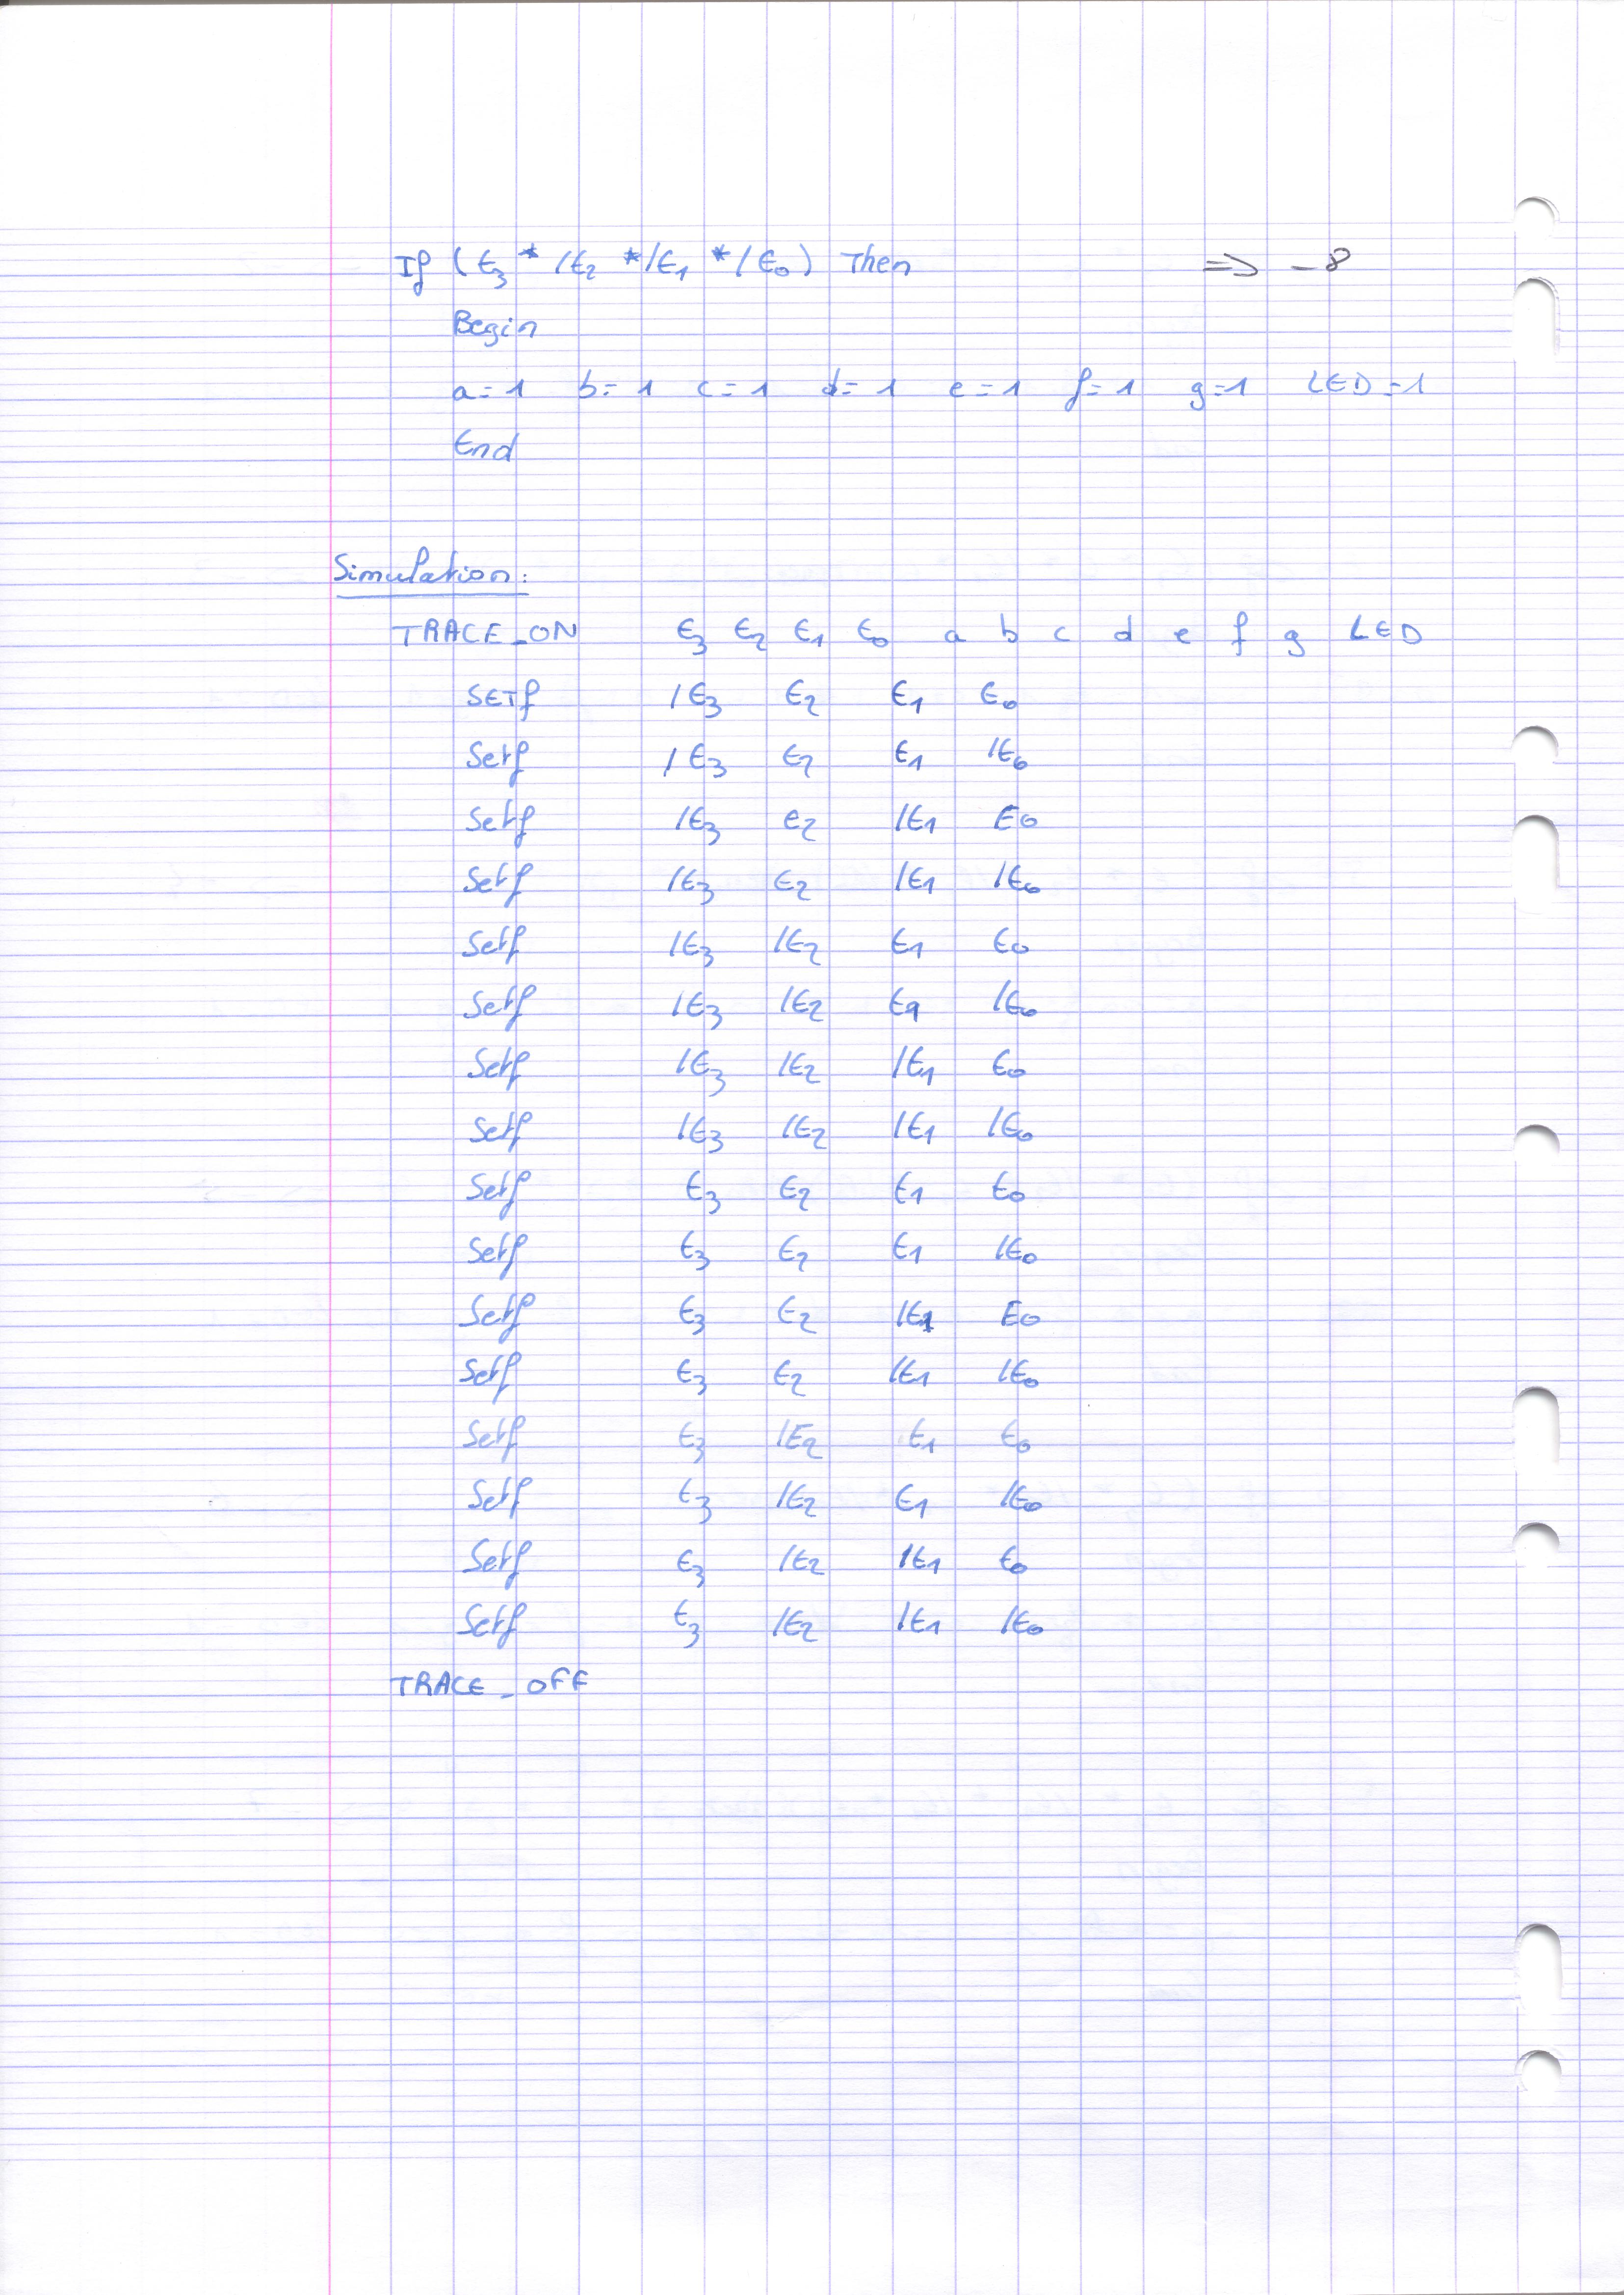 If (E3 * /E2 * /E1 * /E0) Then => -8
Begin
a=1 b=1 c=1 d=1 e=1 f=1 g=1 LED=1
End
Simulation:
TRACE_ON E3 E2 E1 E0 a b c d e f g LED
SETf /E3 E2 E1 E0
Setf /E3 E2 E1 /E0
Setf /E3 e2 /E1 E0
Setf /E3 E2 /E1 /E0
Setf /E3 /E2 E1 E0
Setf /E3 /E2 E1 /E0
Setf /E3 /E2 /E1 E0
Setf /E3 /E2 /E1 /E0
Setf E3 E2 E1 E0
Setf E3 E2 E1 /E0
Setf E3 E2 /E1 E0
Setf E3 E2 /E1 /E0
Setf E3 /E2 E1 E0
Setf E3 /E2 E1 /E0
Setf E3 /E2 /E1 E0
Setf E3 /E2 /E1 /E0
TRACE_OFF